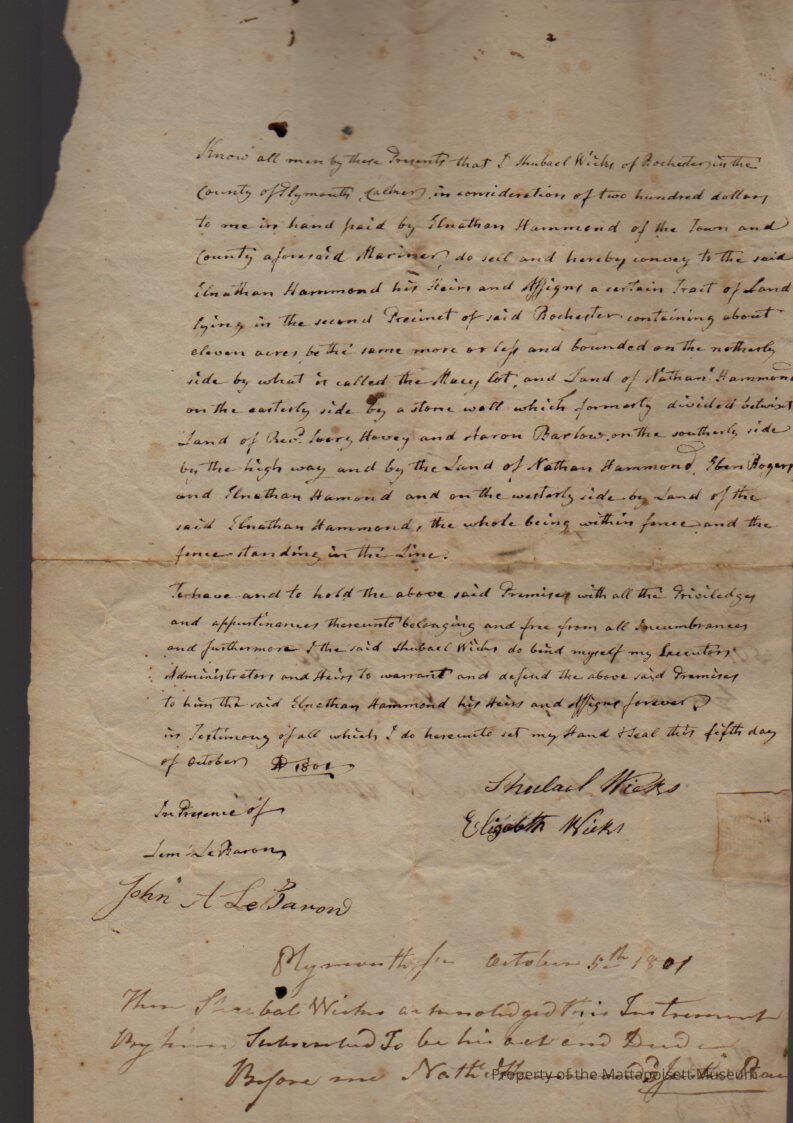 Know all men by these Presents that I Shubael Wicks of Rochester in the
County of Plymouth in consideration of two hundred dollars
to me in hand paid by Elnathan Hammond of the Town and
County aforesaid Mariner, do sell and hereby convey to the said
Elnathan Hammond his Heirs and Assigns a certain Tract of Land
lying in the second Precinct of said Rochester containing about
eleven acres be the same more or less and bounded on the notherly
side by what is called the Macy lot, and Land of Nathanl Hammond
on the easterly side by a stone wall which formerly divided betwixt
Land of Revd. Ivory Hovey and Aaron Barlow, on the southerly side
by the high way and by the Land of Nathan Hammond, Eben Rogers
and Elnathan Hamond and on the westerly side by Land of the
said Elnathan Hammond, the whole being within fence and the
fence standing in the Line.
To have and to hold the above said Premises with all the Priviledges
and appurtinances thereunto belonging and free from all Incumbrances
and furthermore I the said Shubael Wicks do bind myself my Executors
Administrators and Heirs to warrant and defend the above said Premises
to him the said Elnathan Hammond his Heirs and Assigns forever
in Testimony of all which I do hereunto set my Hand & Seal this fifth day
of October AD 1801
Shubael Wicks
In Presence of
Elizabeth Wicks
Leml LeBaron
John A LeBaron
Plymouth ss October 5th 1801
Then Shuebal Wicks acknoledged this Instrument
By him Subscribed To be his act and Deed
Before me Nathl
Property of the Mattapoisett Museum